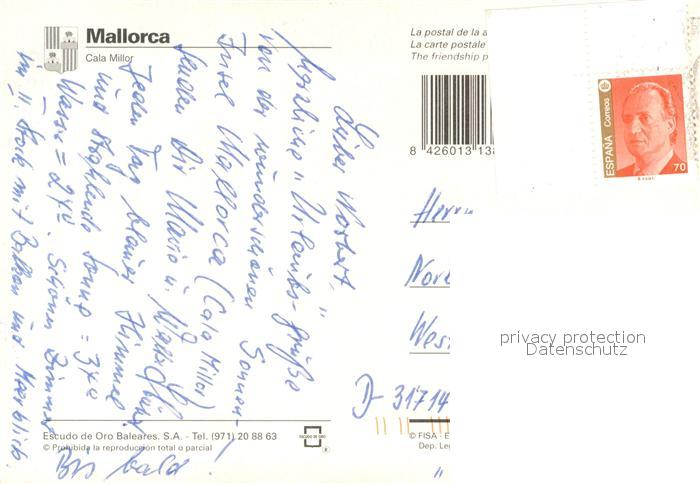 Mallorca
Cala Millor
La postal de la a
La carte postale
The friendship p
8 426013 138
ESPAÑA
Correos
70
Lieber Norbert,
herzliche "Urlaubs-grüße"
von der wunderschönen Sonnen-
Insel Mallorca (Cala Millor)
senden Dir Maria u.
Jeden Tag blauer Himmel
und strahlende Sonne = 34°
Wasser = 24° Schönes Zimmer
im 11. Stock mit Balkon und Meerblick.
Bis bald!
Herrn
Nor
Wes
D-31714
privacy protection
Datenschutz
Escudo de Oro Baleares. S.A. - Tel. (971) 20 88 63
© Prohibida la reproducción total o parcial
ESCUDO DE ORO
© FISA - E
Dep. Leg